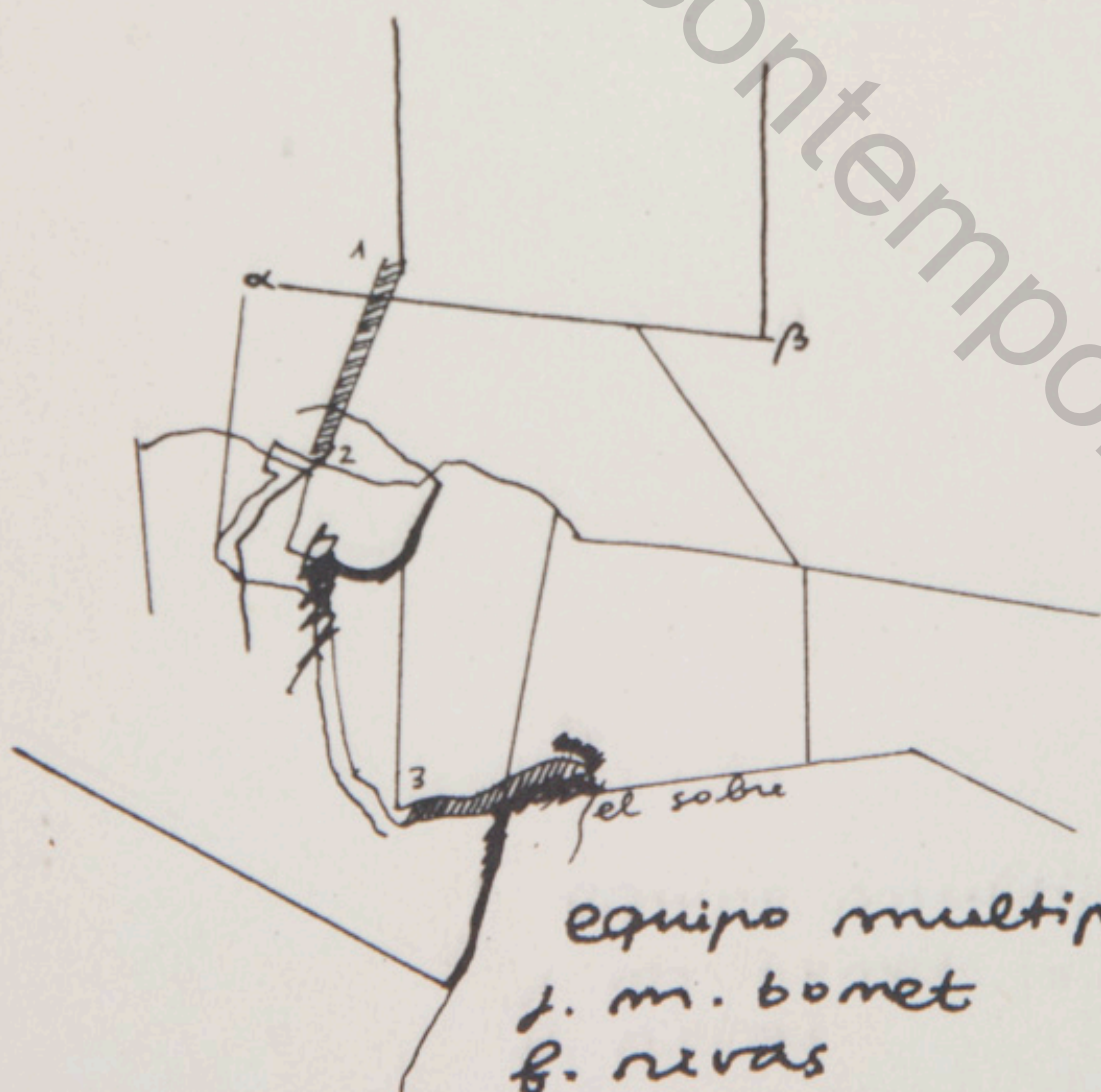 contempo
1
α
β
2
3
el sobre
equipo multip
j. m. bonet
rivas